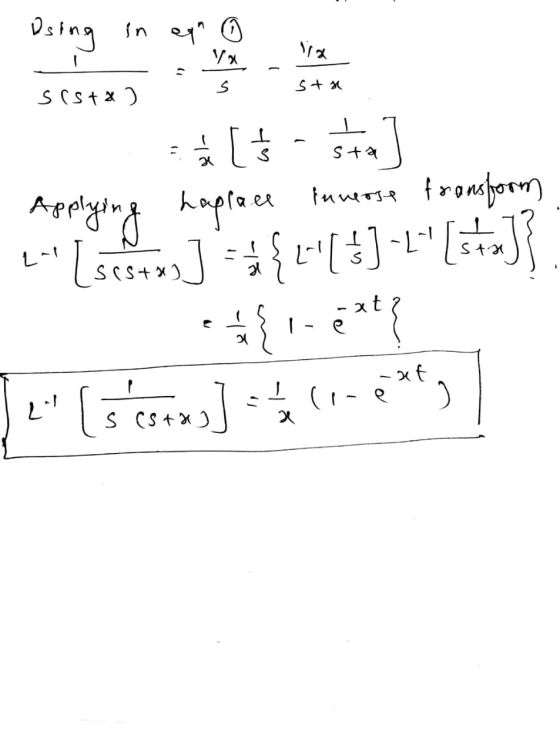 Using in eqⁿ ①
1/(s(s+x)) = (1/x)/s - (1/x)/(s+x)
= 1/x [1/s - 1/(s+x)]
Applying Laplace Inverse transform.
L⁻¹[1/(s(s+x))] = 1/x {L⁻¹[1/s] - L⁻¹[1/(s+x)]}.
= 1/x {1 - e^(-xt)}
L⁻¹[1/(s(s+x))] = 1/x (1 - e^(-xt))